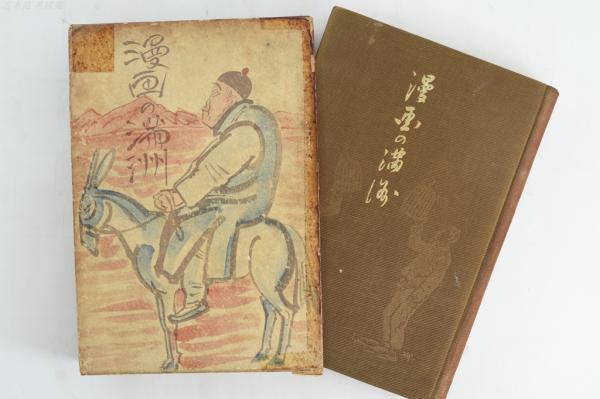 漫画の満洲
漫画の満洲